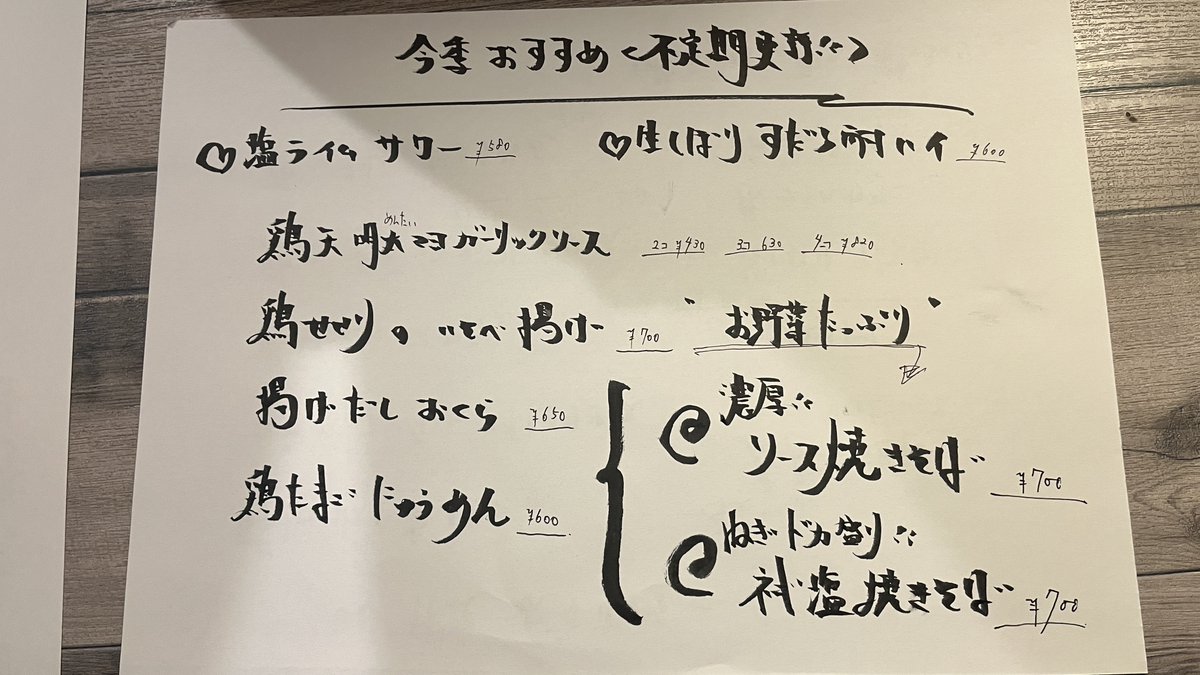 今季おすすめ<不定期更新!!>
♡塩ライムサワー ¥580
♡生しぼりすだち酎ハイ ¥600
めんたい
鶏天明太マヨガーリックソース 2コ ¥430 3コ 630 4コ ¥820
鶏せせりのいそべ揚げ ¥700
揚げだしおくら ¥650
鶏たまごにゅうめん ¥600
"お野菜たっぷり"
濃厚!!
ソース焼きそば ¥700
ねぎドカ盛り!!
ネギ塩焼きそば ¥700